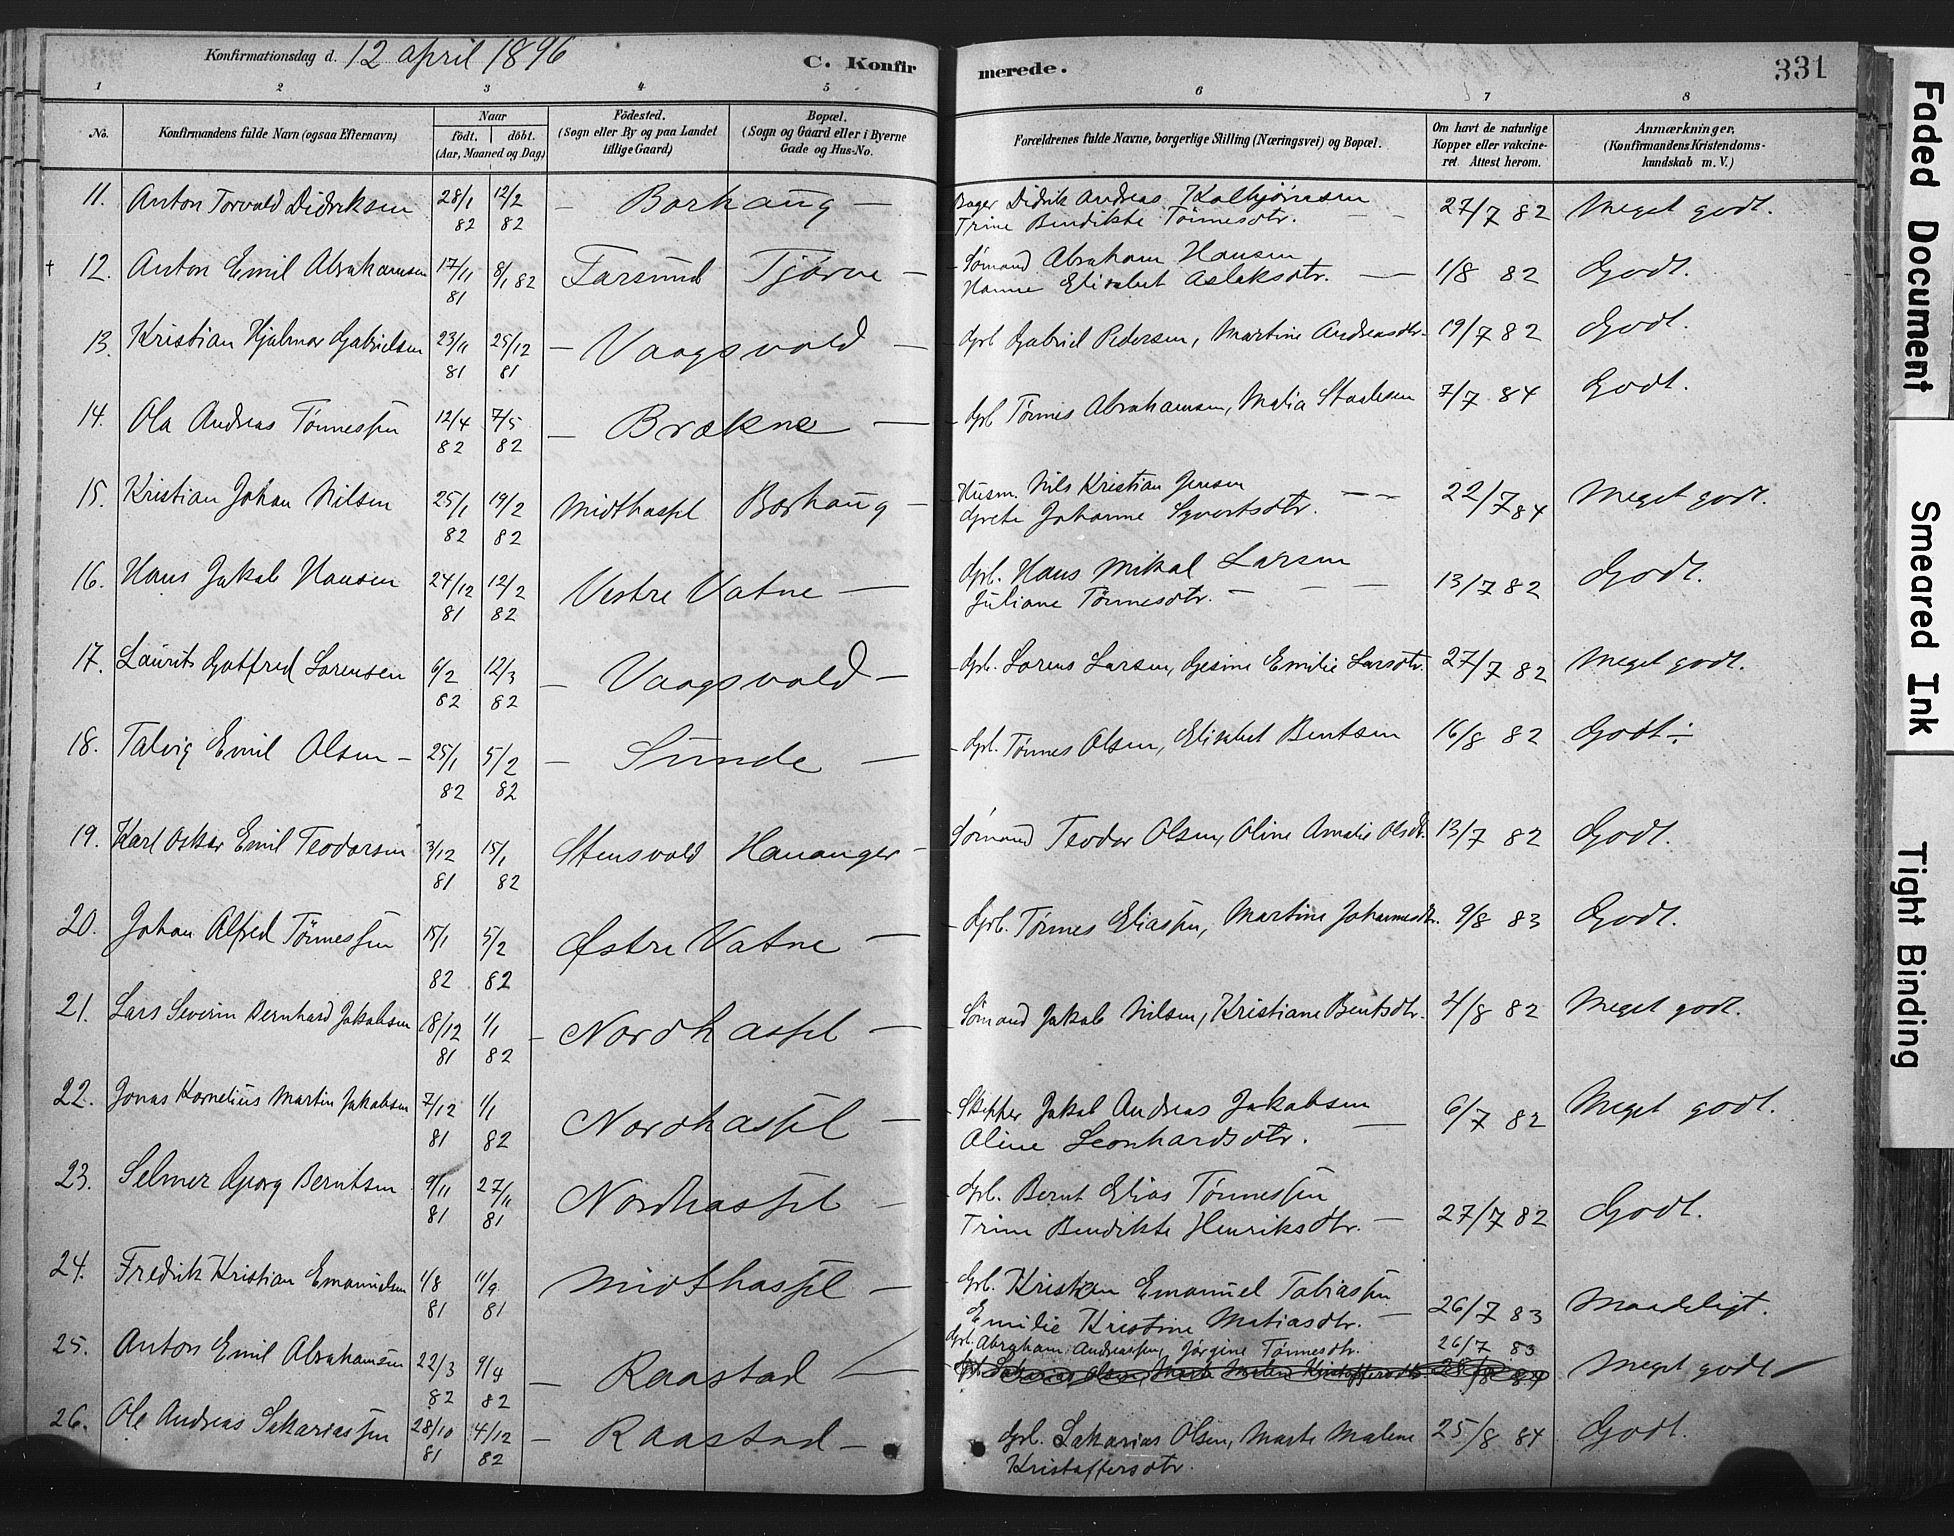 Konfirmationsdag d. 12 april 1896 C. Konfirmerede. 331
1 2 3 4 5 6 7 8
No. Konfirmandens fulde Navn (ogsaa Efternavn) Naar født. døbt. (Aar, Maaned og Dag) Fødested. (Sogn eller By og paa Landet tillige Gaard) Bopæl. (Sogn og Gaard eller i Byerne Gade og Hus-No. Forældrenes fulde Navne, borgerlige Stilling (Næringsvei) og Bopæl. Om havt de naturlige Kopper eller vakcineret. Attest herom. Anmærkninger. (Konfirmandens Kristendomskundskab m. V.)
11. Anton Torvald Didriksen 28/1 82 12/2 82 – Borhaug – Didrik Andreas Kolbjørnsen
Trine Bendikte Tønnesdtr. – – 27/7 82 Meget godt.
+ 12. Anton Emil Abrahamsen 17/11 81 8/1 82 Farsund Tjørve – Sømand Abraham Hansen
Hanne Elisabet Aslaksdtr. – 1/8 82 Godt.
13. Kristian Hjalmar Gabrielsen 23/11 81 25/12 81 – Vaagsvold – Grb Gabriel Pedersen, Martine Andreasdtr. 19/7 82 Godt.
14. Ola Andreas Tønnessen 12/4 82 7/5 82 – Brækne – Grb Tønnes Abrahamsen, Malia Staalesen 7/7 84 Godt.
15. Kristian Johan Nilsen 25/1 82 19/2 82 Midthassel Borhaug – Husm. Nils Kristian Jensen
Grete Johanne Syvertsdtr. – – 22/7 84 Meget godt.
16. Hans Jakob Hansen 24/12 81 12/2 82 Vestre Vatne – Grb. Hans Mikal Larsen
Juliane Tønnesdtr. – – – 13/7 82 Godt.
17. Laurits Gotfred Lorensen 6/2 82 12/3 82 – Vaagsvold – Grb. Lorens Larsen, Gesine Emilie Larsdtr. 27/7 82 Meget godt.
18. Talvig Emil Olsen – 25/1 82 5/2 82 – Sunde – Grb. Tønnes Olsen, Elisabet Bentsen 16/8 82 Godt÷
19. Karl Oskar Emil Teodorsen 3/12 81 15/1 82 Stensvold Hananger – Sømand Teodor Olsen, Oline Amalie Olsdtr. 13/7 82 Godt.
20. Johan Alfred Tønnessen 15/1 82 5/2 82 Østre Vatne – Grb. Tønnes Eliassen, Martine Johannesdtr. 9/8 83 Godt.
21. Lars Severin Bernhard Jakobsen 18/12 81 1/1 82 – Nordhassel – Sømand Jakob Nilsen, Kristiane Bentsdtr. 4/8 82 Meget godt.
22. Jonas Kornelius Martin Jakobsen 7/12 81 1/1 82 Nordhassel – Skipper Jakob Andreas Jakobsen
Oline Leonhardsdtr. – 6/7 82 Meget godt.
23. Selmer Georg Berntsen 9/11 81 27/11 81 Nordhassel – Grb. Bernt Elias Tønnessen
Trine Bendikte Henriksdtr. – 27/7 82 Godt.
24. Fredrik Kristian Emanuelsen 1/8 81 11/9 81 Midthassel – Grb. Kristian Emanuel Tobiassen
Emilie Kristine Matiasdtr. – 26/7 83 Maadeligt.
25. Anton Emil Abrahamsen 22/3 82 9/4 82 – Raastad – Grb. Abraham Andreassen, Jørgine Tønnesdtr. 26/7 83 Meget godt
26. Ole Andreas Sakariassen 28/10 81 4/12 82 – Raastad – Grb. Sakarias Olsen, Marte Malene
Kristoffersdtr. 25/8 84 Godt.
Faded Document
Smeared Ink
Tight Binding